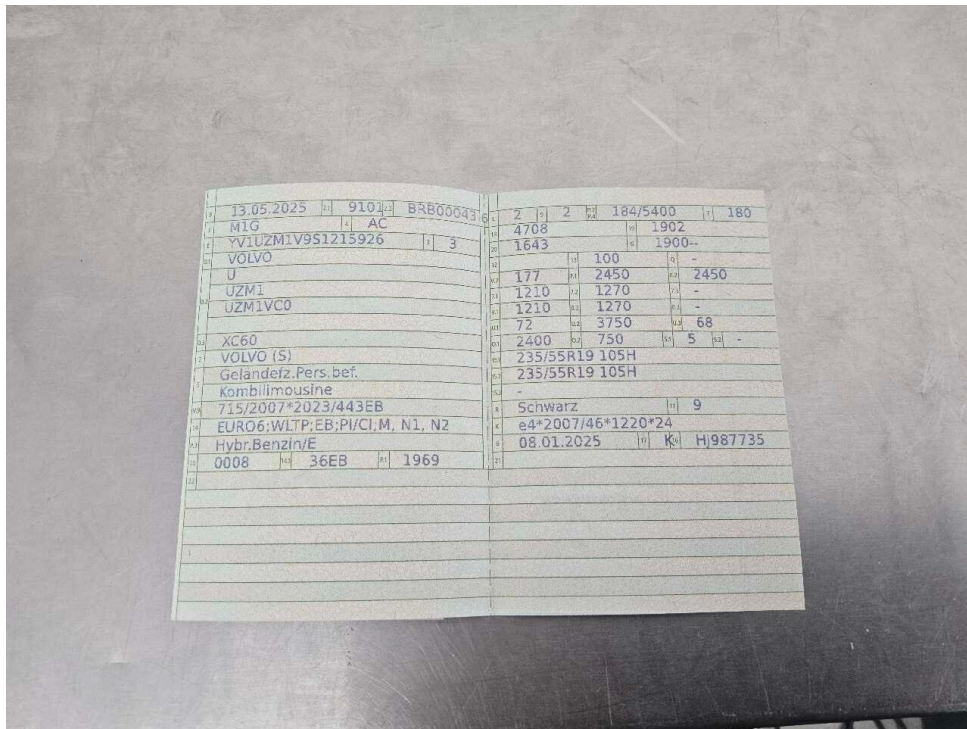 13.05.2025 9101 BRB00043 6
M1G 4 AC
YV1UZM1V9S1215926 3 3
VOLVO
U
UZM1
UZM1VC0
XC60
VOLVO (S)
Geländefz.Pers.bef.
Kombilimousine
715/2007*2023/443EB
EURO6;WLTP;EB;PI/CI;M, N1, N2
Hybr.Benzin/E
0008 36EB 1969
2 2 184/5400 180
4708 1902
1643 1900--
100 -
177 2450 2450
1210 1270 -
1210 1270 -
72 3750 68
2400 750 5 -
235/55R19 105H
235/55R19 105H
-
Schwarz 9
e4*2007/46*1220*24
08.01.2025 K HJ987735